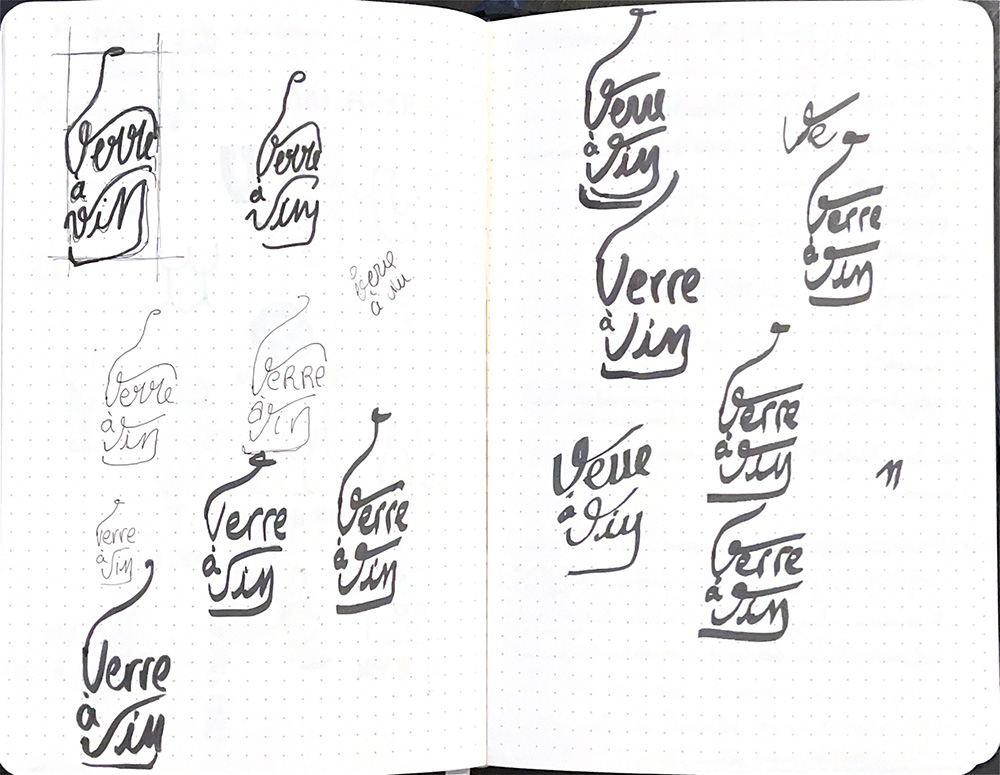 Verre
à
Vin
Verre
à
Vin
Verre
à
Vin
Verre
à
Vin
VeRRe
à
Vin
Verre
à
Vin
Verre
à
Vin
Verre
à
Vin
Verre
à
Vin
Verre
à
Vin
Ve
Verre
à
Vin
Verre
à
Vin
Verre
à
Vin
Verre
à
Vin
n
Verre
à
Vin